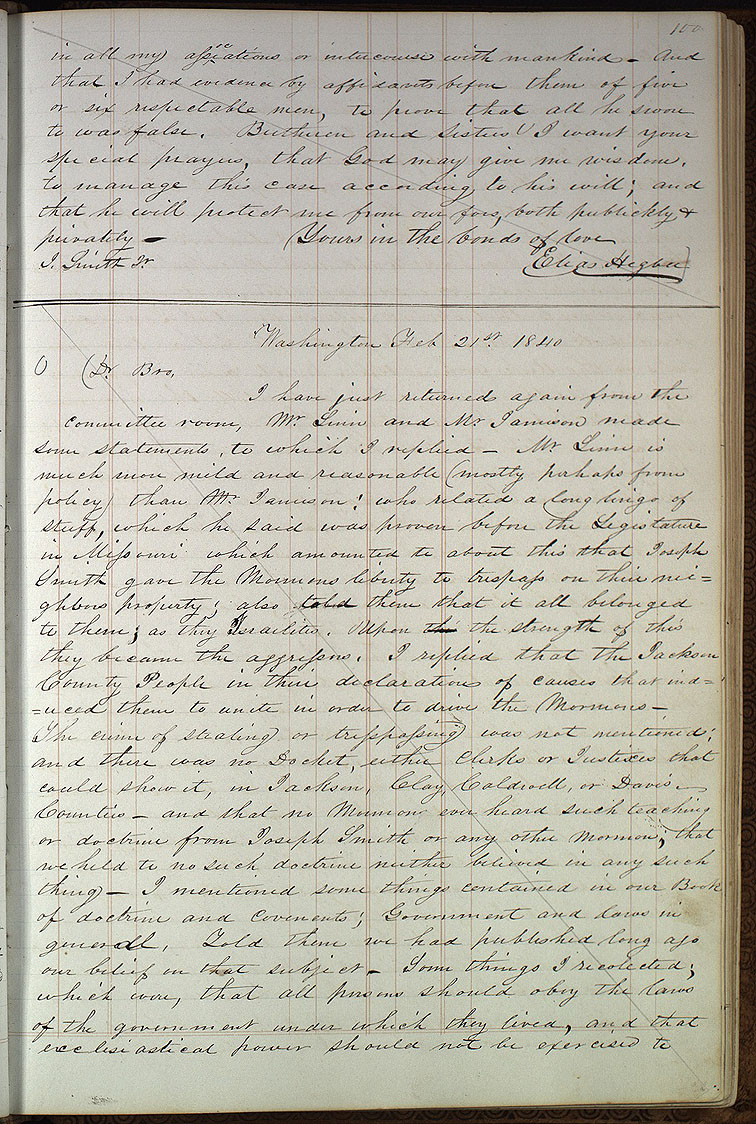 100
in all my assoiations or intercourse with mankind - And
that I had evidence by affidavits before them of five
or six respectable men, to prove that all he swore
to was false. Brethren and Sisters I want your
special prayers, that God may give me wisdom,
to manage this case according to his will; and
that he will protect me from our foes, both publickly &
privately — Yours in the bonds of love
J. Smith Jr. Elias Higbee
Washington Feb 21st. 1840
O Dr. Bro,
I have just returned again from the
committee room, Mr. Linn and Mr Jamison made
some statements, to which I replied - Mr Linn is
much more mild and reasonable (mostly perhaps from
policy) than Mr Jameson; who related a long lingo of
stuff, which he said was proven before the Legistature
in Missouri which amounted to about this that Joseph
Smith gave the Mormons liberty to trespass on their nei=
ghbors property; also told them that it all belonged
to them; as they Israelites. Upon the the strength of this
they became the aggressors. I replied that the Jackson
County People in their declaration of causes that ind=
=uced them to unite in order to drive the Mormons—
The crime of stealing or tresspassing was not mentioned;
and there was no Docket, either Clerks or Justices that
could show it, in Jackson, Clay, Caldwell, or Davis
Counties - and that no Mormon ever heard such teaching
or doctrine from Joseph Smith or any other Mormon; that
we held to no such doctrine neither believed in any such
thing - I mentioned some things contained in our Book
of doctrine and Covenents; Government and laws in
generall, Told them we had published long ago
our belief on that subject - Some things I recolected;
which were, that all persons should obey the laws
of the government under which they lived, and that
ecclesiastical power should not be exercised to